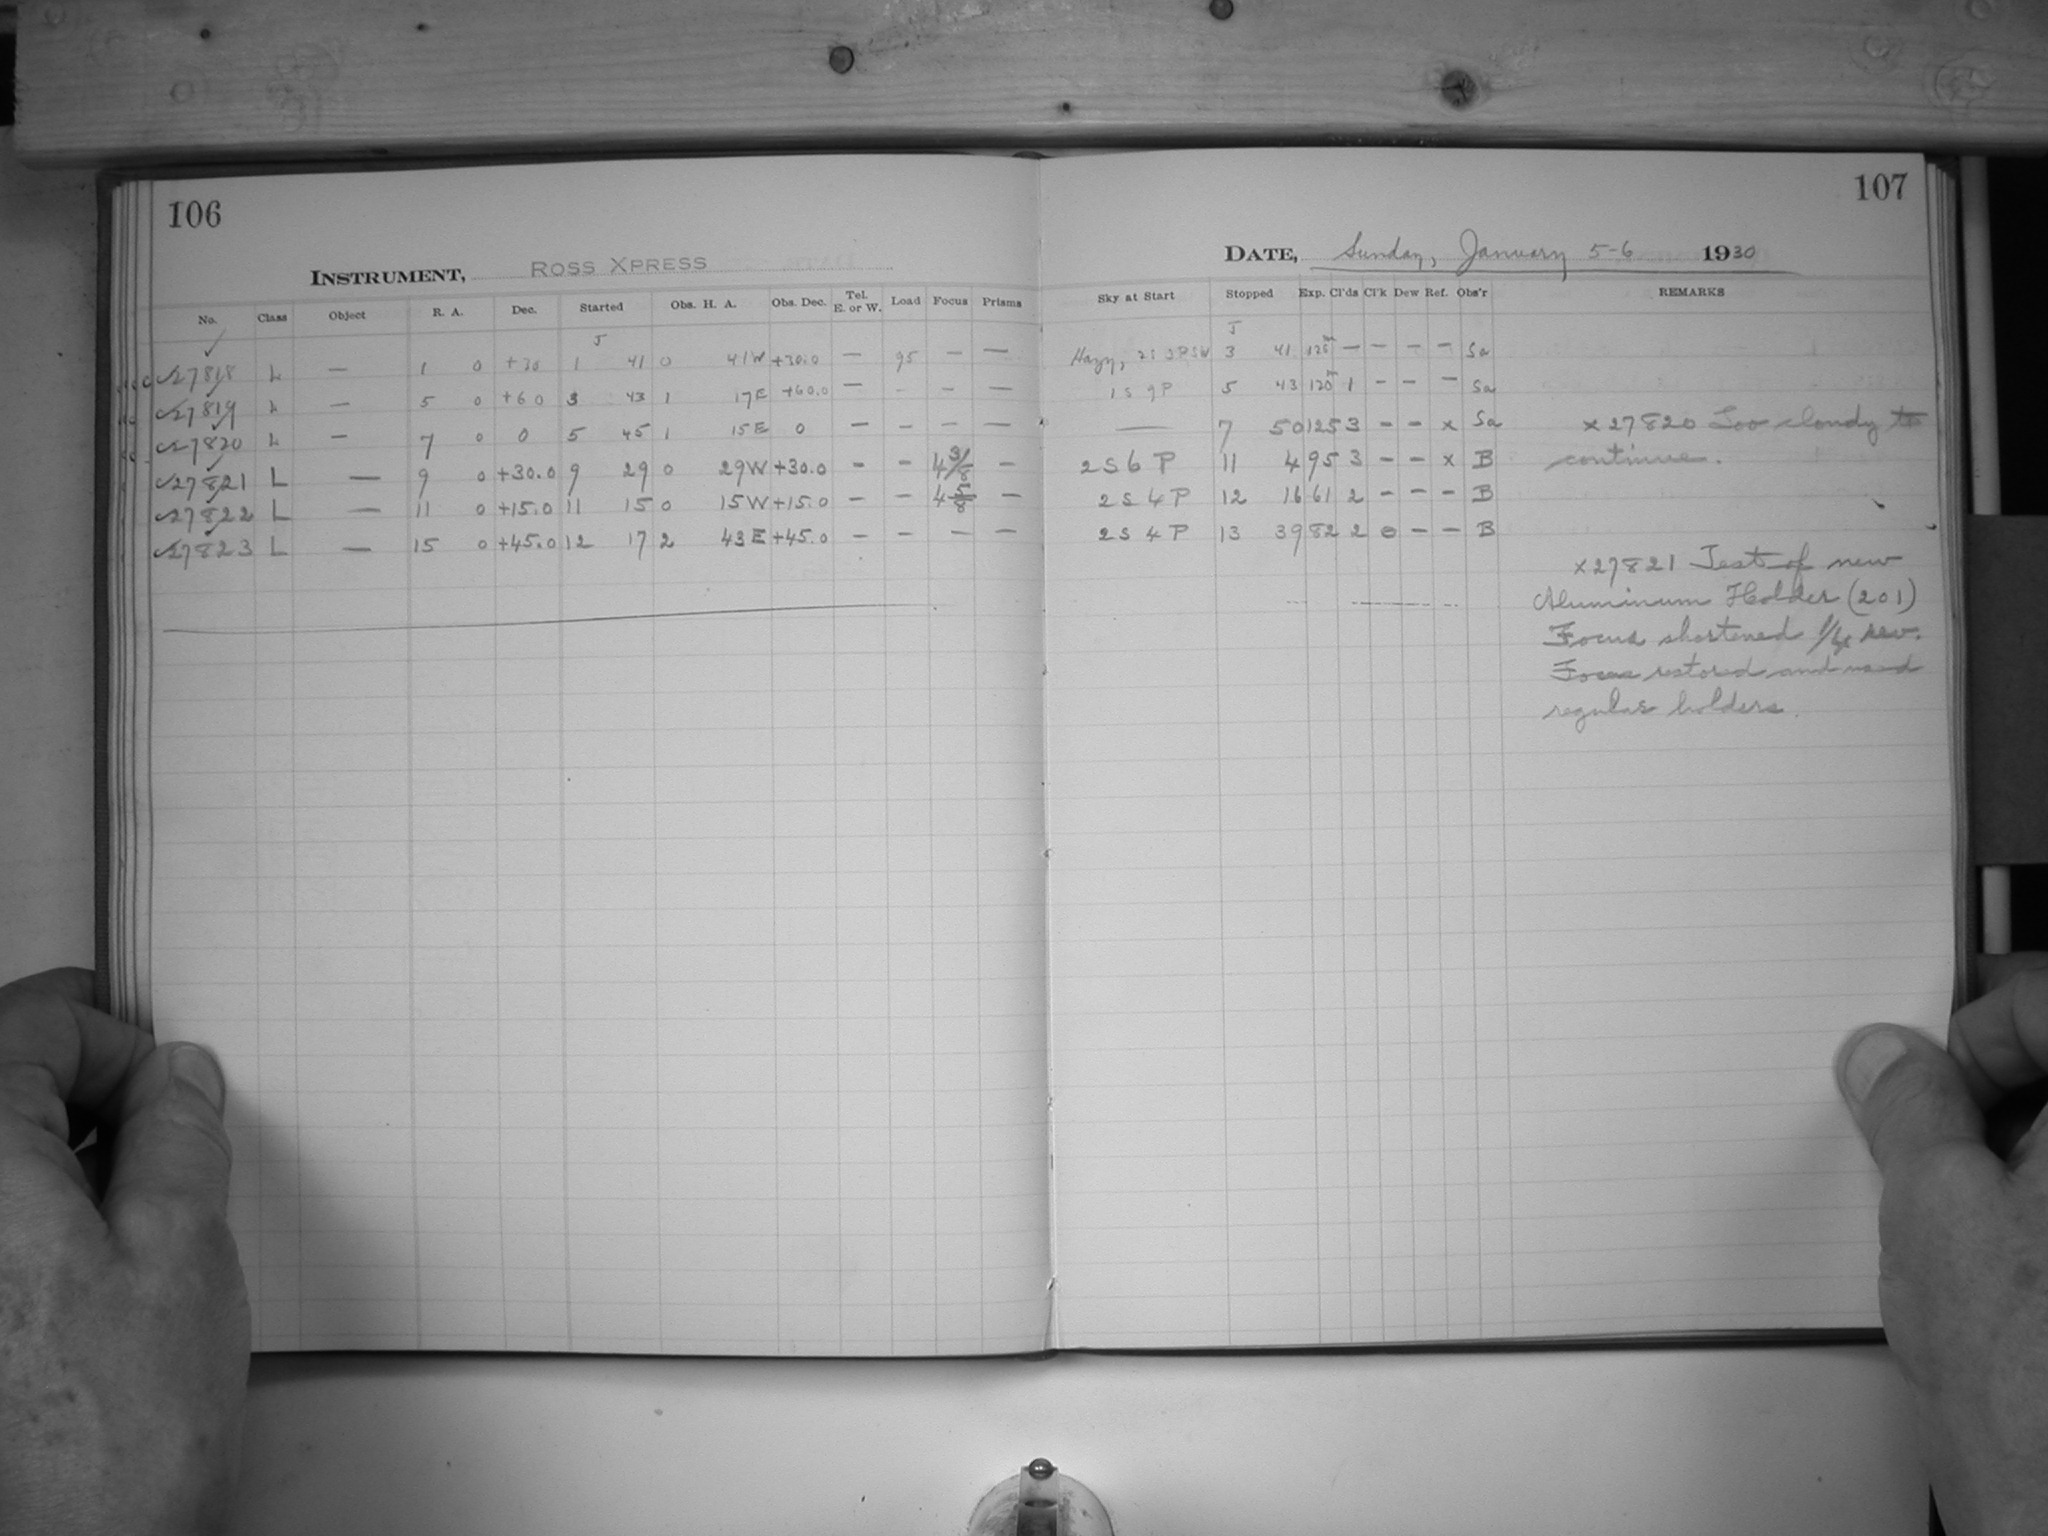 106
107
INSTRUMENT, ROSS XPRESS
DATE, Sunday, January 5-6 1930
No. Class Object R. A. Dec. Started Obs. H. A. Obs. Dec. Tel. E. or W. Load Focus Prisms Sky at Start Stopped Exp. Cl'ds Cl'k Dew Ref. Obs'r REMARKS
J J
27818 L — 1 0 +30 1 41 0 41W +30.0 — 95 — — Hazy, 3 41 — — — — Sa
27819 L — 5 0 +60 3 43 1 17E +60.0 — – – — 1 S 9 P 5 43 120m 1 – – – Sa
27820 L — 7 0 0 5 45 1 15E 0 — – – — — 7 50 125 3 – – x Sa x27820 Too cloudy to
27821 L — 9 0 +30.0 9 29 0 29W +30.0 – – 4 3/8 — 2 S 6 P 11 4 95 3 – – x B continue.
27822 L — 11 0 +15.0 11 15 0 15W +15.0 – – 4 5/8 — 2 S 4 P 12 16 61 2 – – – B
27823 L — 15 0 +45.0 12 17 2 43E +45.0 – – – — 2 S 4 P 13 39 82 2 0 – – B
x27821 Test of new
Aluminum Holder (201)
Focus shortened 1/4 rev.
Focus restored and used
regular holders.